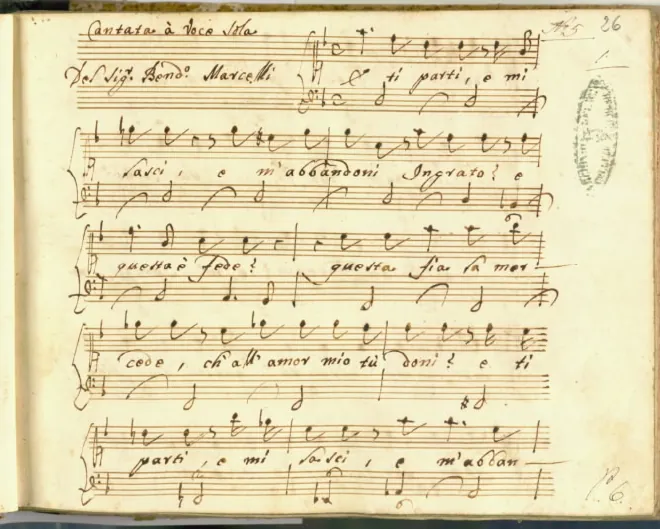 Cantata à Voce Sola
26
1
Del Sig.r Bend.o Marcelli
E ti parti, e mi
lasci, e m'abbandoni Ingrato? e
questa è fede? questa fia la mer
cede, ch'all'amor mio tù doni? e ti
parti, e mi lasci, e m'abban